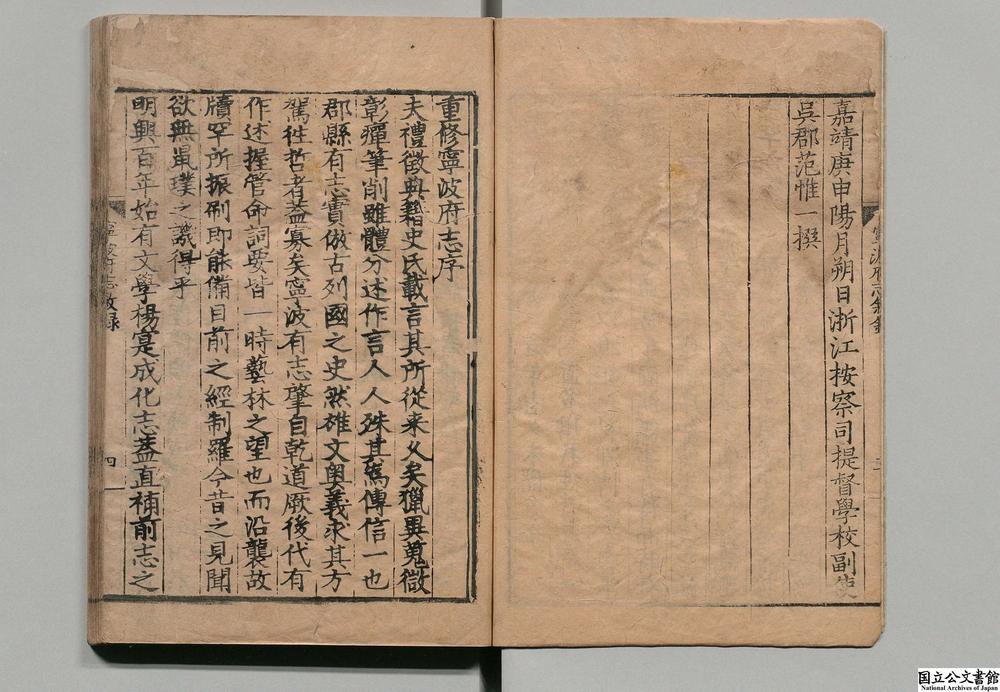 嘉靖庚申陽月朔日浙江按察司提督學校副使
吳郡范惟一撰
重修寧波府志序
夫禮徵典籍史氏載言其所從来乆矣獵異蒐微
彰癉筆削雖體分述作言人人殊其為傳信一也
郡縣有志實倣古列國之史然雄文奧義求其方
駕徃哲者蓋寡矣寧波有志肇自乾道厥後代有
作述握管命詞要皆一時藝林之望也而沿襲故
牘罕所振刷即能備目前之經制羅今昔之見聞
欲無鼠璞之譏得乎
明興百年始有文學楊寔成化志葢直補前志之
四
国立公文書館
National Archives of Japan